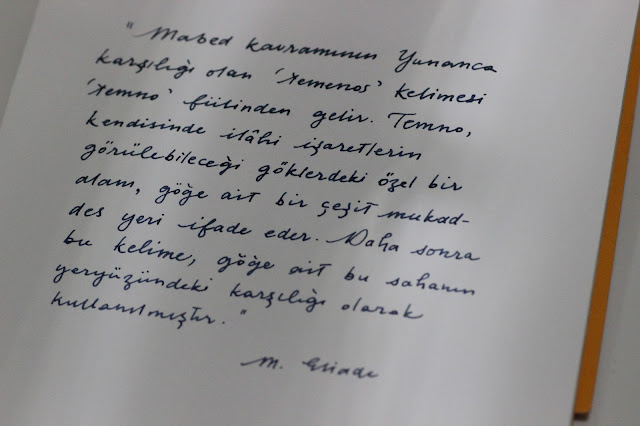 "Mabed kavramının Yunanca
karşılığı olan 'temenos' kelimesi
'temno' fiilinden gelir. Temno,
kendisinde ilâhi işaretlerin
görülebileceği göklerdeki özel bir
alanı, göğe ait bir çeşit mukad-
des yeri ifade eder. Daha sonra
bu kelime, göğe ait bu sahanın
yeryüzündeki karşılığı olarak
kullanılmıştır."
M. Eliade